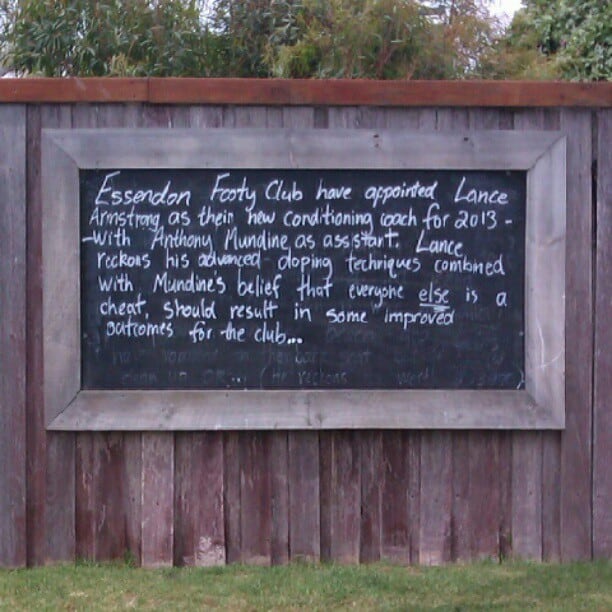 Essendon Footy Club have appointed Lance
Armstrong as their new conditioning coach for 2013 -
- with Anthony Mundine as assistant. Lance
reckons his advanced doping techniques combined
with Mundine's belief that everyone else is a
cheat, should result in some improved
outcomes for the club...
on the back seat
(he reckons